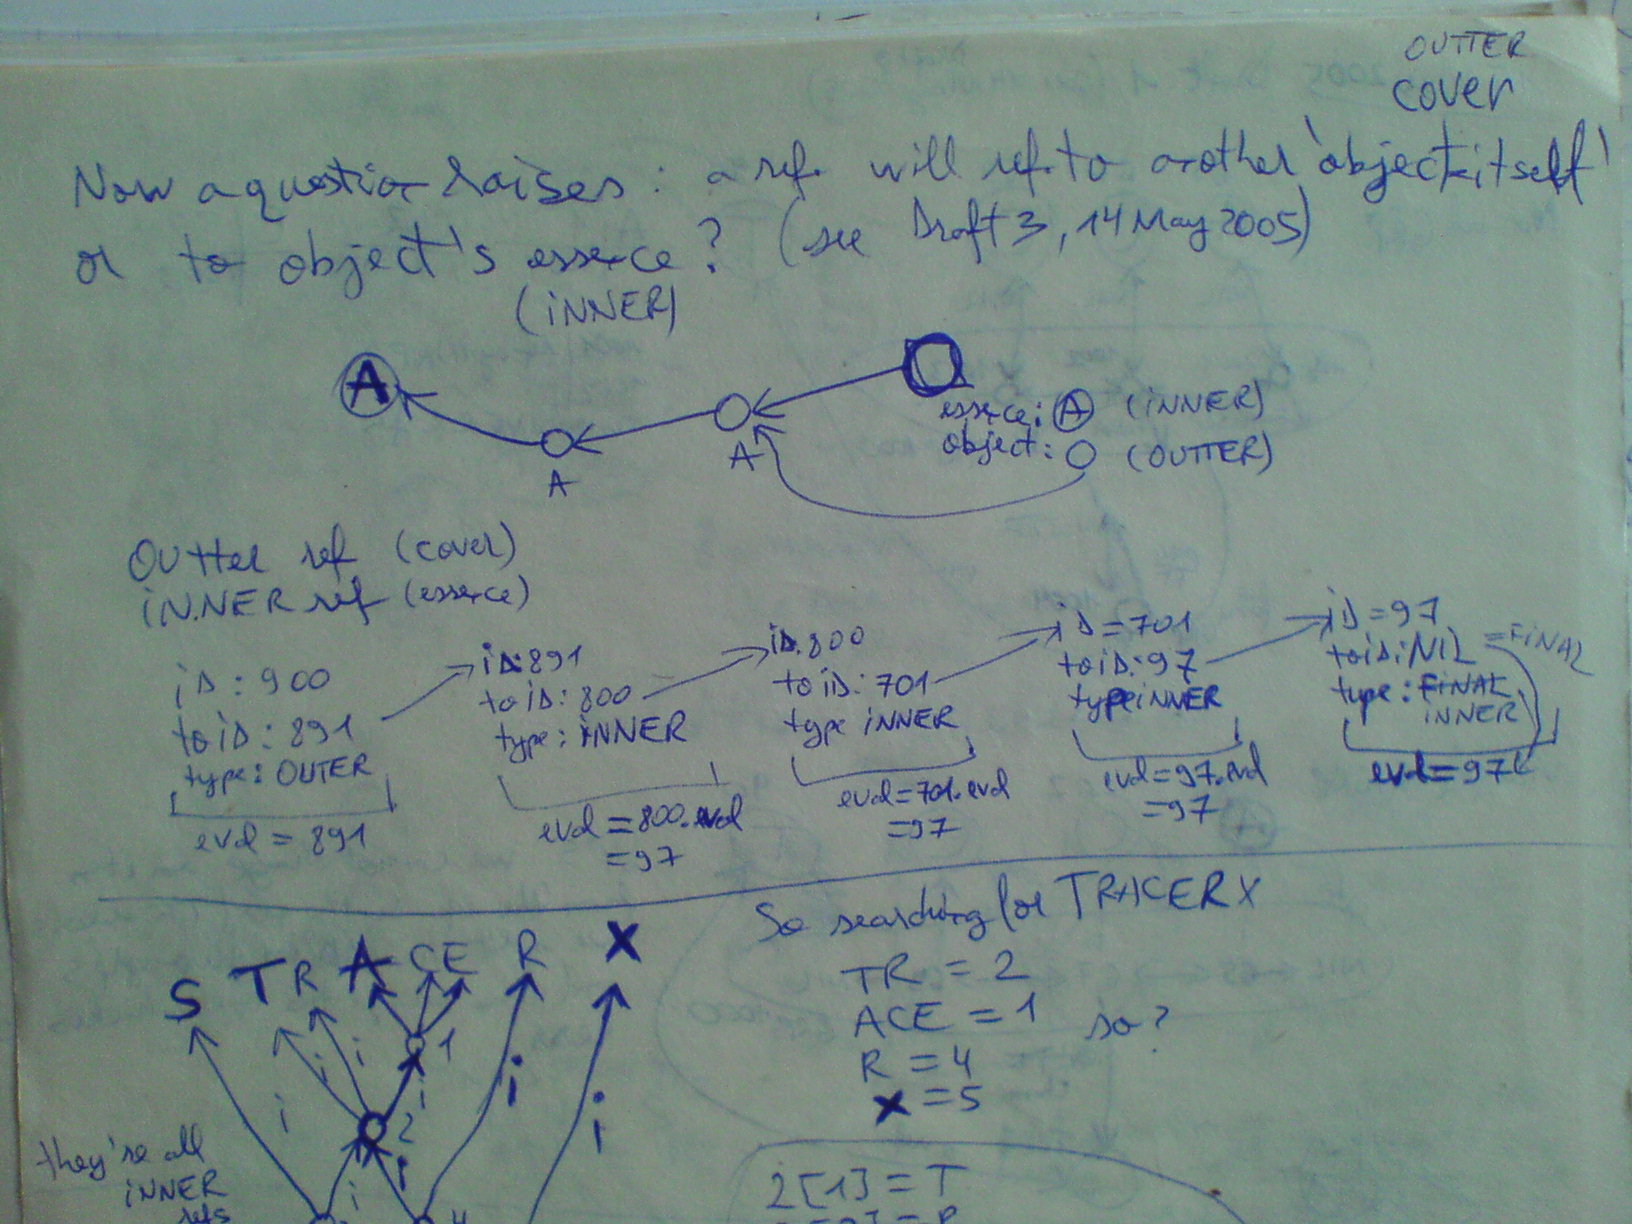 OUTTER
cover
Now a question raises: a ref. will ref. to another 'object itself'
or to object's essence? (see Draft 3, 14 May 2005)
(INNER)
A
essence: A (INNER)
object: O (OUTTER)
A
A
Outter ref (cover)
INNER ref (essence)
iD: 900
toiD: 891
type: OUTER
evol = 891
iD: 891
toiD: 800
type: INNER
evol = 800.evol
= 97
iD. 800
toiD: 701
type INNER
evol = 701.evol
= 97
iD = 701
toiD: 97
type INNER
evol = 97.evol
= 97
iD = 97
toiD: NIL = FINAL
type: FINAL
INNER
evol = 97
So searching for TRACERX
TR = 2
ACE = 1 so?
R = 4
X = 5
S T R A C E R X
1
i i i
i i i
i 2
i
i 4
they're all
INNER
refs
2[1] = T